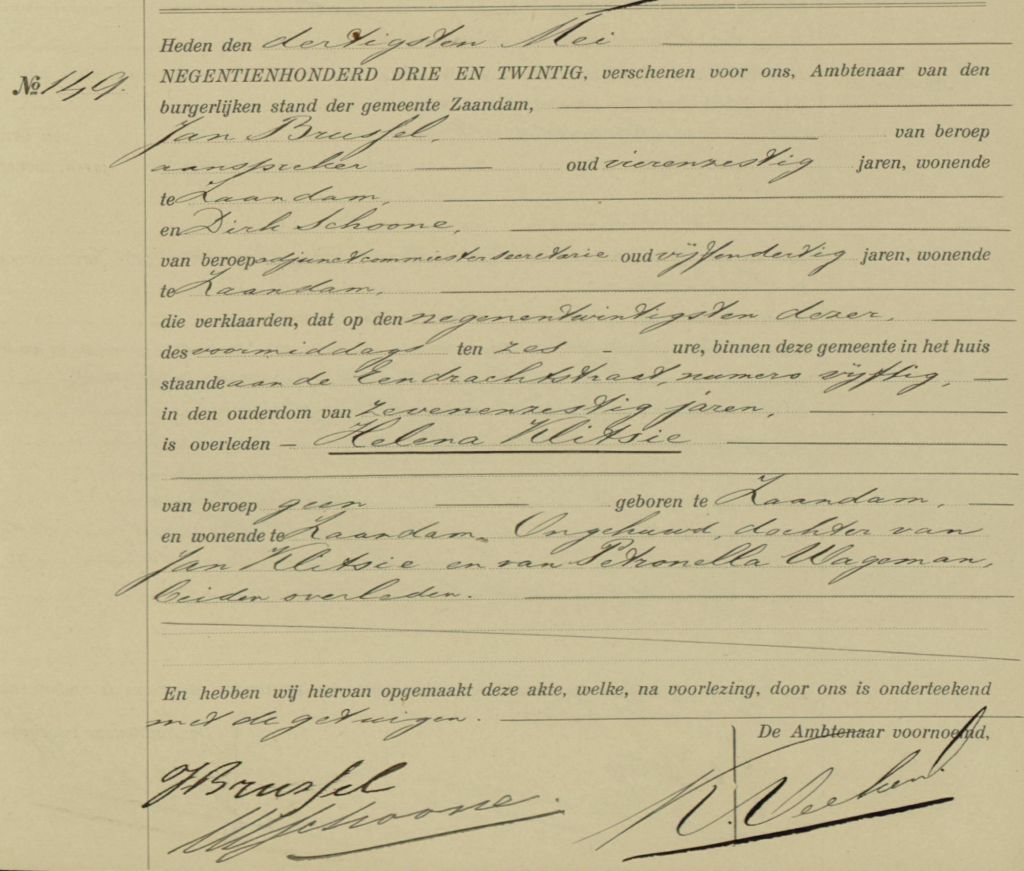 Heden den dertigsten Mei
№ 149.
NEGENTIENHONDERD DRIE EN TWINTIG, verschenen voor ons, Ambtenaar van den
burgerlijken stand der gemeente Zaandam,
Jan Brussel, van beroep
aanspreker oud vierenzestig jaren, wonende
te Zaandam,
en Dirk Schoone,
van beroep adjunctcommies ter secretarie oud vijfendertig jaren, wonende
te Zaandam,
die verklaarden, dat op den negenentwintigsten dezer,
des voormiddags ten zes - ure, binnen deze gemeente in het huis
staande aan de Eendrachtstraat, numero vijftig,
in den ouderdom van zevenenzestig jaren,
is overleden — Helena Klitsie
van beroep geen geboren te Zaandam,
en wonende te Zaandam. Ongehuwd, dochter van
Jan Klitsie en van Petronella Wageman,
beiden overleden.
En hebben wij hiervan opgemaakt deze akte, welke, na voorlezing, door ons is onderteekend
met de getuigen.
De Ambtenaar voornoemd,
JBrussel
Schoone.
K.